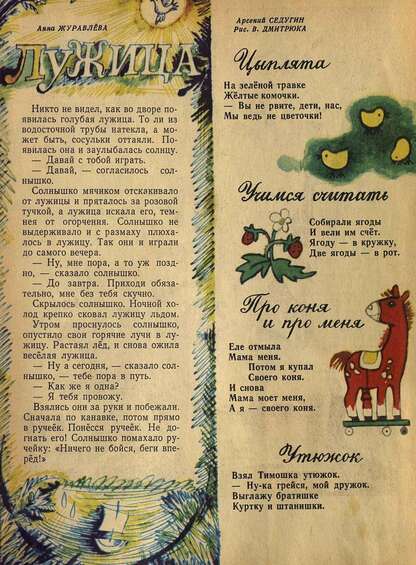 Анна ЖУРАВЛЁВА
ЛУЖИЦА
Никто не видел, как во дворе по-
явилась голубая лужица. То ли из
водосточной трубы натекла, а
может быть, сосульки оттаяли. По-
явилась она и заулыбалась солнцу.
— Давай с тобой играть.
— Давай, — согласилось сол-
нышко.
Солнышко мячиком отскакивало
от лужицы и пряталось за розовой
тучкой, а лужица искала его, тем-
нея от огорчения. Солнышко не
выдерживало и с размаху плюха-
лось в лужицу. Так они и играли
до самого вечера.
— Ну, мне пора, а то уж позд-
но, — сказало солнышко.
— До завтра. Приходи обяза-
тельно, мне без тебя скучно.
Скрылось солнышко. Ночной хо-
лод крепко сковал лужицу льдом.
Утром проснулось солнышко,
опустило свои горячие лучи в лу-
жицу. Растаял лёд, и снова ожила
весёлая лужица.
— Ну а сегодня, — сказало сол-
нышко, — тебе пора в путь.
— Как же я одна?
— Я тебя провожу.
Взялись они за руки и побежали.
Сначала по канавке, потом прямо
в ручеёк. Понёсся ручеёк. Не до-
гнать его! Солнышко помахало ру-
чейку: «Ничего не бойся, беги впе-
рёд!»
Арсений СЕДУГИН
Рис. В. ДМИТРЮКА
Цыплята
На зелёной травке
Жёлтые комочки.
— Вы не рвите, дети, нас,
Мы ведь не цветочки!
Учимся считать
Собирали ягоды
И вели им счёт.
Ягоду — в кружку,
Две ягоды — в рот.
Про коня
и про меня
Еле отмыла
Мама меня.
Потом я купал
Своего коня.
И снова
Мама моет меня,
А я — своего коня.
Утюжок
Взял Тимошка утюжок.
— Ну-ка грейся, мой дружок.
Выглажу братишке
Куртку и штанишки.